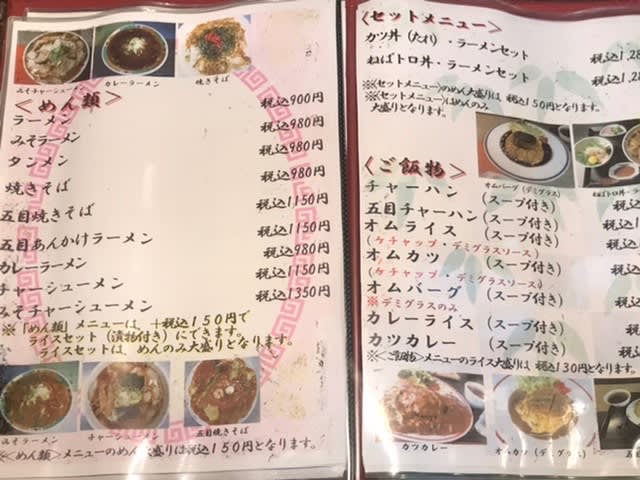 みそチャーシューメン
カレーラーメン
焼きそば
<めん類>
ラーメン 税込900円
みそラーメン 税込980円
タンメン 税込980円
焼きそば 税込980円
五目焼きそば 税込1150円
五目あんかけラーメン 税込1150円
カレーラーメン 税込980円
チャーシューメン 税込1150円
みそチャーシューメン 税込1350円
※「めん類」メニューは、+税込150円で
ライスセット(漬物付き)にできます。
ライスセットは、めんのみ大盛りとなります。
みそラーメン
チャーシューメン
五目焼きそば
※<めん類>メニューのめん大盛りは税込150円となります。
<セットメニュー>
カツ丼(たれ)・ラーメンセット 税込1,28
ねばトロ丼・ラーメンセット 税込1,28
※<セットメニュー>のめん大盛りは 税込150円となります。
※<セットメニュー>はめんのみ
大盛りとなります。
オムバーグ(デミグラス)
ねばトロ丼・
<ご飯物>
チャーハン (スープ付き) 税込
五目チャーハン (スープ付き) 税込
オムライス (スープ付き) 税込
(ケチャップ・デミグラスソース)
オムカツ (スープ付き) 税込
(ケチャップ・デミグラスソース)
オムバーグ (スープ付き) 税込
※デミグラスのみ
カレーライス (スープ付き) 税込
カツカレー (スープ付き) 税込
※<ご飯物>メニューのライス大盛りは 税込130円となります。
カツカレー
オムカツ(デミグラス)
五目